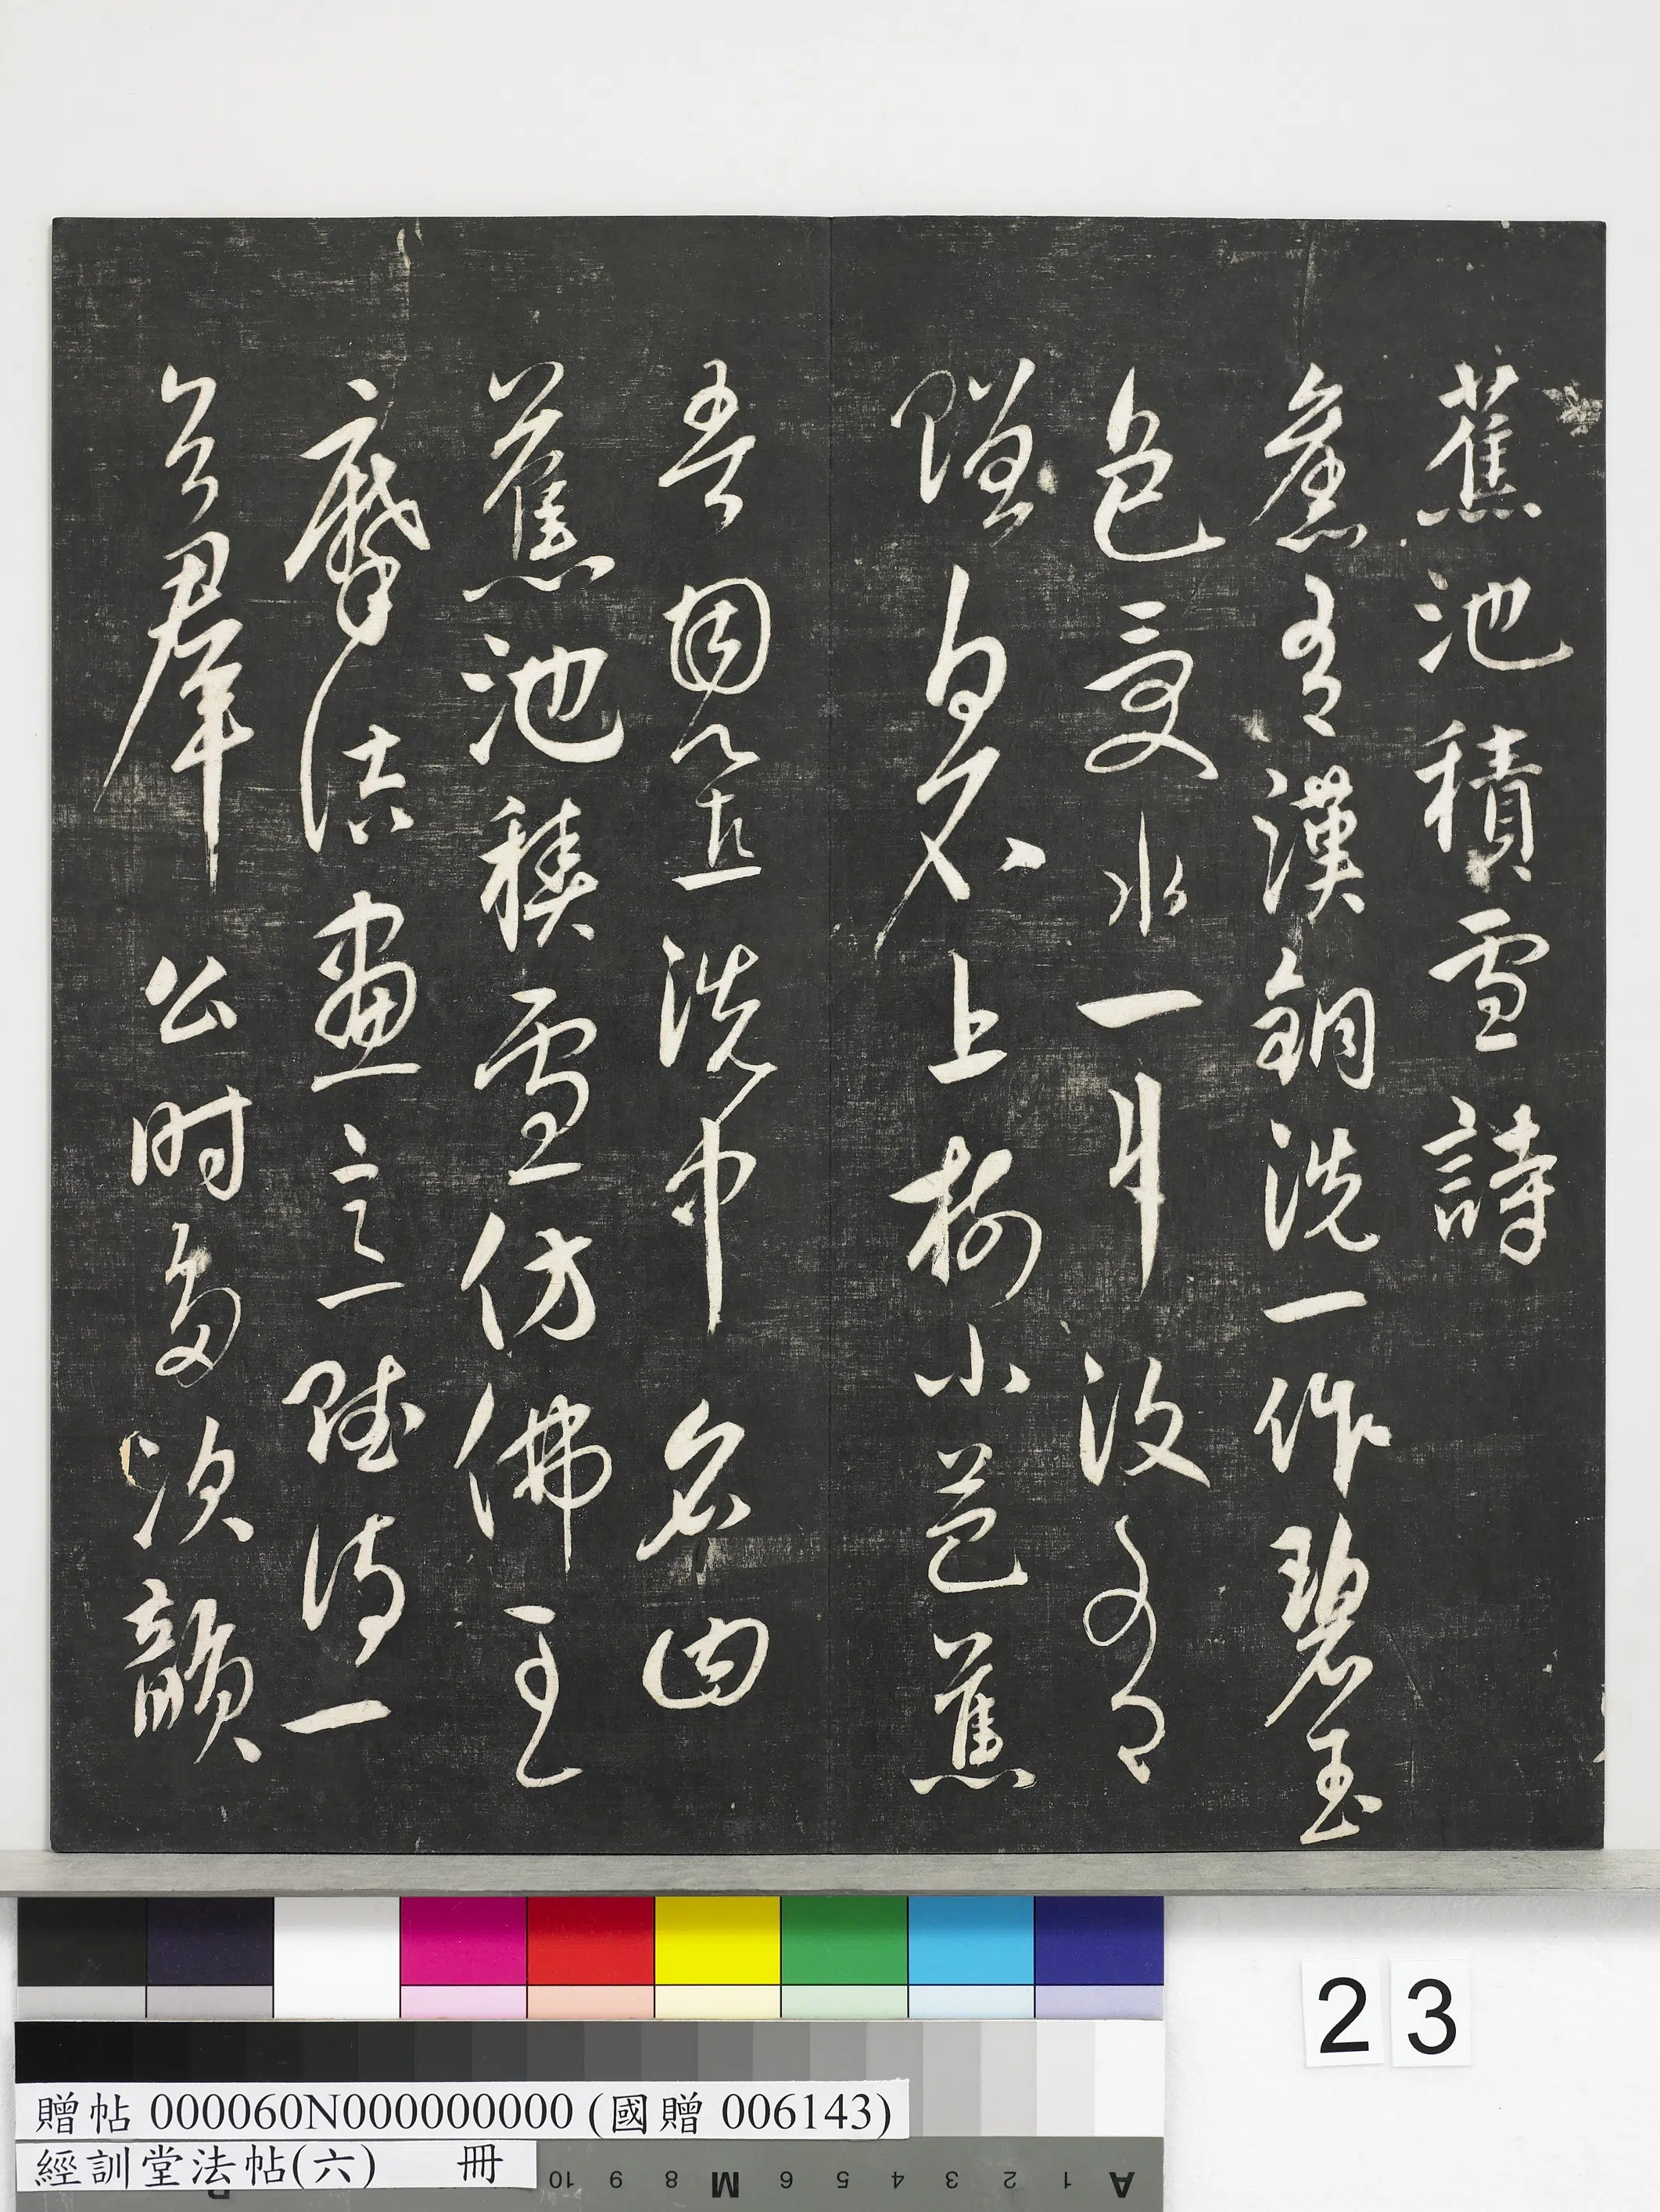 蕉池積雪詩
舊有漢銅洗一作碧玉
色受水一斗汲有
贈白石上樹小芭蕉
吾因以置洗中名曰
蕉池積雪仿佛王
摩詰畫意賦詩一
公時多次韻
23
贈帖 000060N000000000 (國贈 006143)
經訓堂法帖(六) 冊
A 1 2 3 4 5 6 M 8 9 10